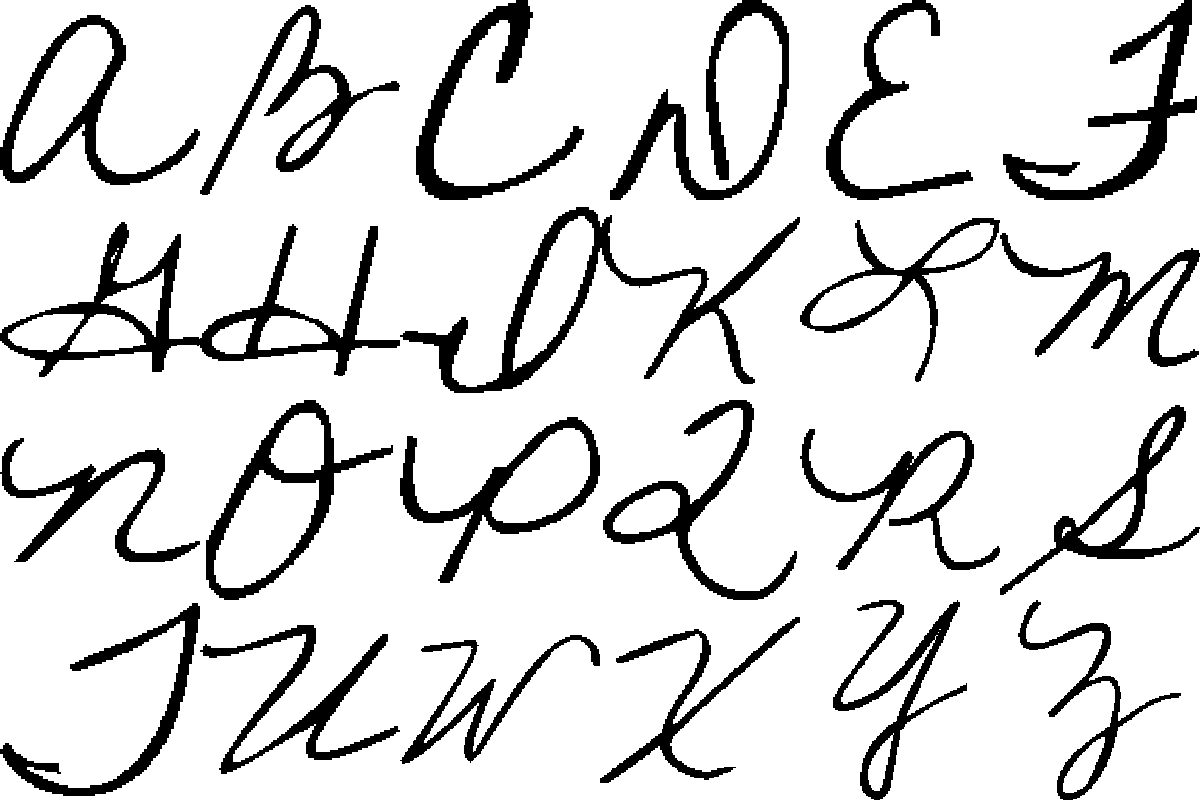 A B C D E F
G H I K L M
N O P Q R S
T U W X Y Z